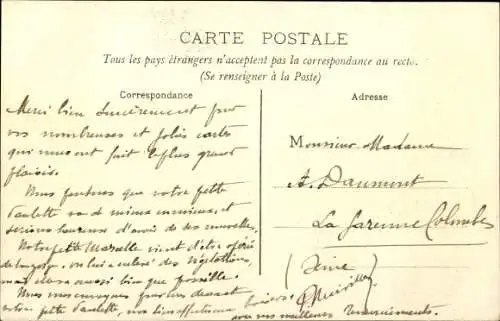 CARTE POSTALE
Tous les pays étrangers n'acceptent pas la correspondance au recto.
(Se renseigner à la Poste)
Correspondance
Adresse
Merci bien sincèrement pour
vos nombreuses et jolies cartes
qui nous ont fait le plus grand
plaisir.
Nous que votre petite
Paulette va de mieux en mieux, et
serions heureux d'avoir de ses nouvelles.
Notre petite Marcelle vient d'être opérée
de la gorge, on lui a enlevé des végétations,
mais va aussi bien que possible.
Nous vous envoyons devant
votre petite Paulette, nos bien affectueux baisers
avec nos meilleurs remerciements.
Monsieur Madame
A. Daumont
La Garenne Colombes
(Seine)